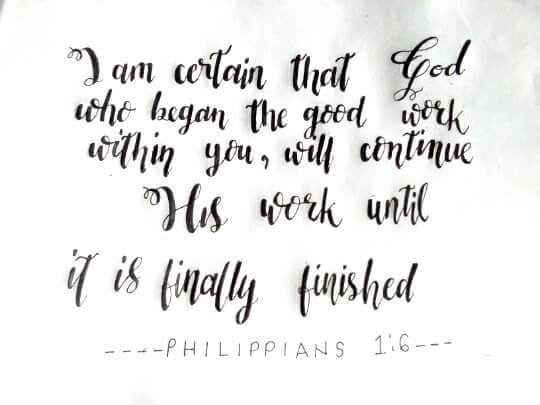 I am certain that God
who began the good work
within you, will continue
His work until
it is finally finished
----PHILIPPIANS 1:6---